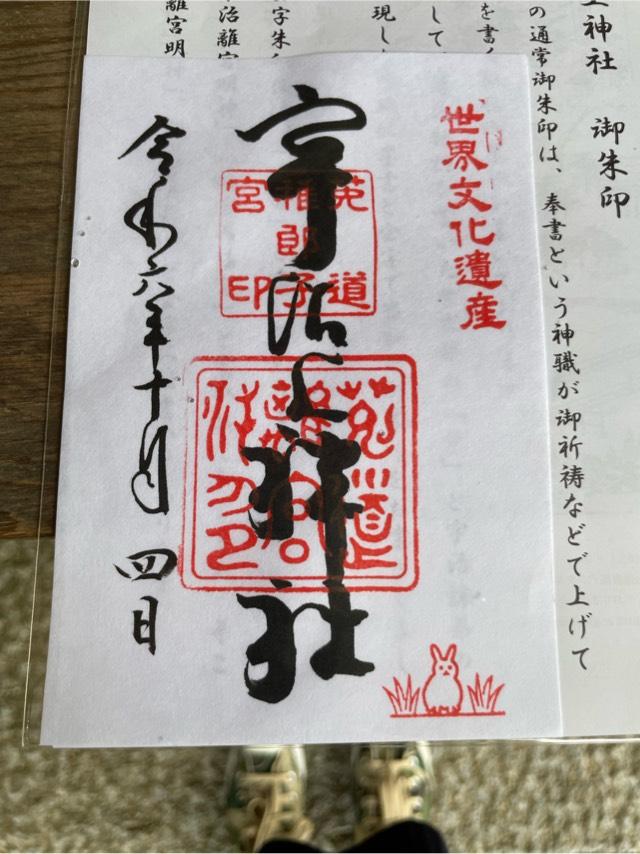 上神社　御朱印
の通常御朱印は、奉書という神職が御祈祷などで上げて
を書く
して
現し
字朱
治離宮
離宮明
世界文化遺産
宇治上神社
菟道
稚郎子
宮印
令和六年十月四日